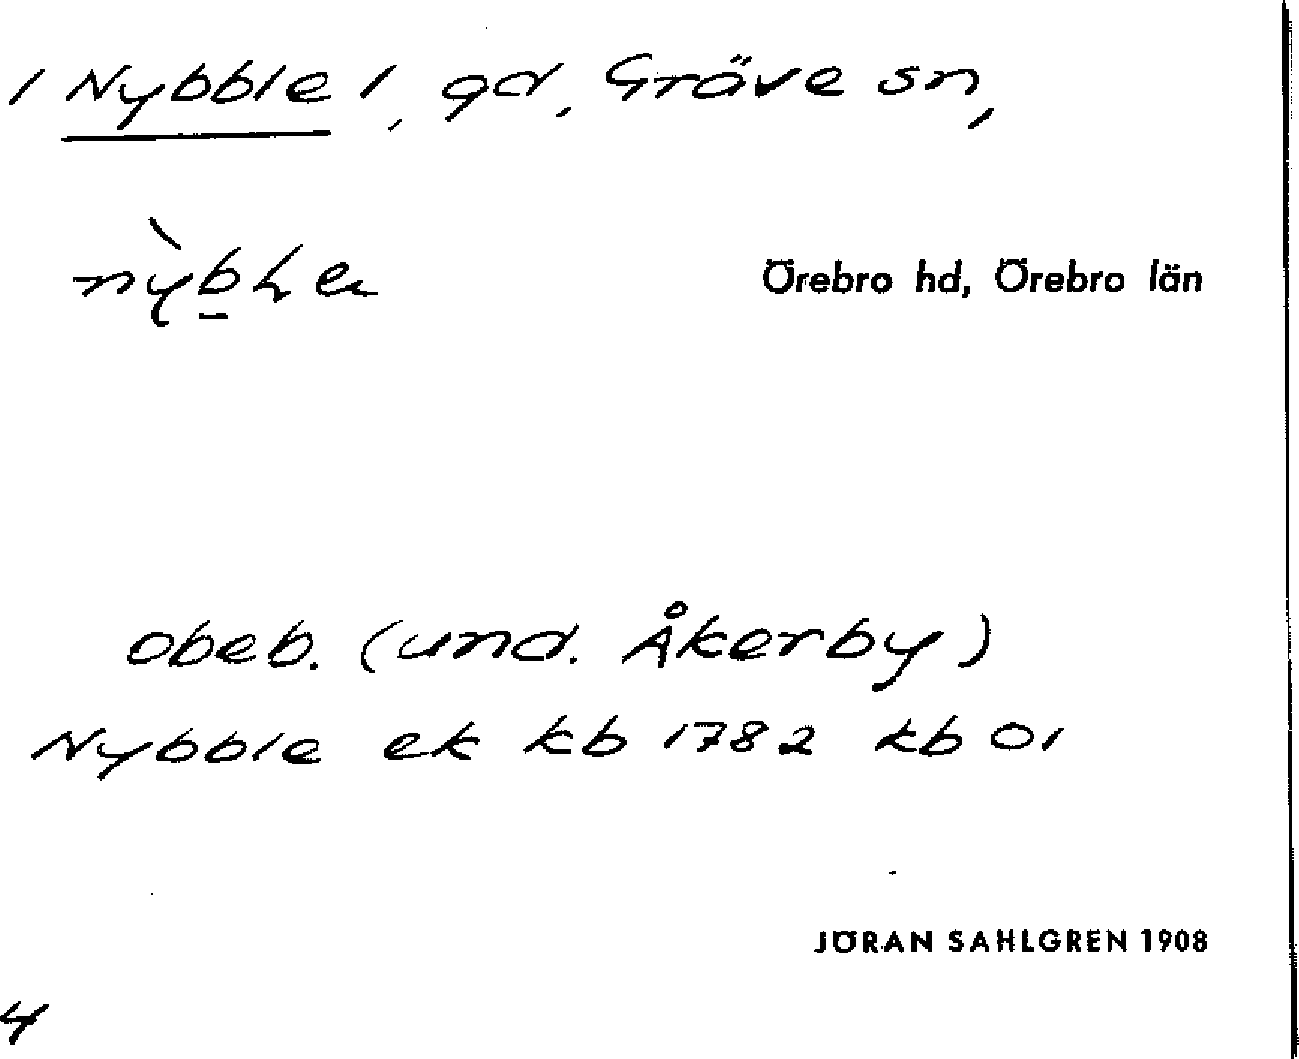 / Nybble /, gd, Gräve sn,
Örebro hd, Örebro län
obeb. (und. Åkerby)
Nybble ek kb 1782 kb 01
JÖRAN SAHLGREN 1908
4